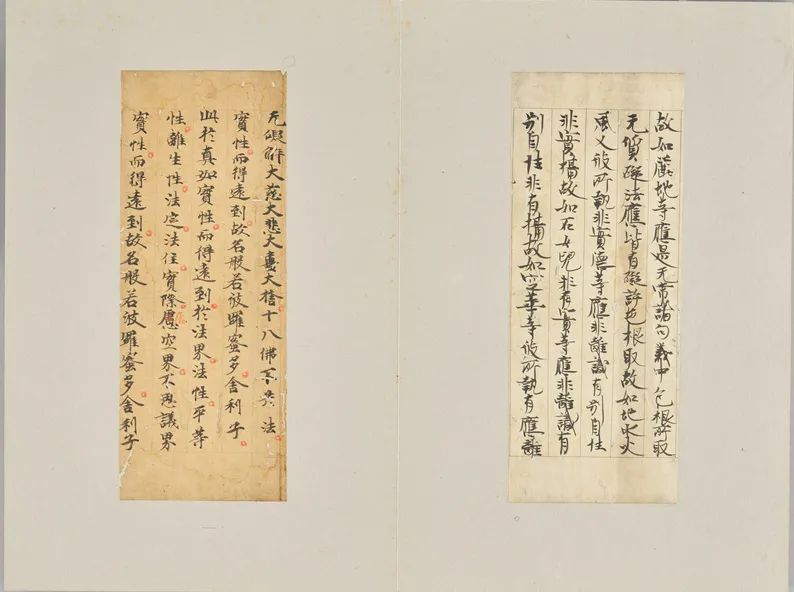 故如麤地等應是无常諸句義中色根所取
无質礙法應皆有礙許色根取故如地水火
風又彼所執非實德等應非離識有別自性
非實攝故如石女兒非有實等應非離識有
別自性非有攝故如空華等彼所執有應離
无礙解大慈大悲大喜大捨十八佛不共法
實性而得遠到故名般若波羅蜜多舍利子
此於真如實性而得遠到於法界法性平等
性離生性法定法住實際虛空界不思議界
實性而得遠到故名般若波羅蜜多舍利子